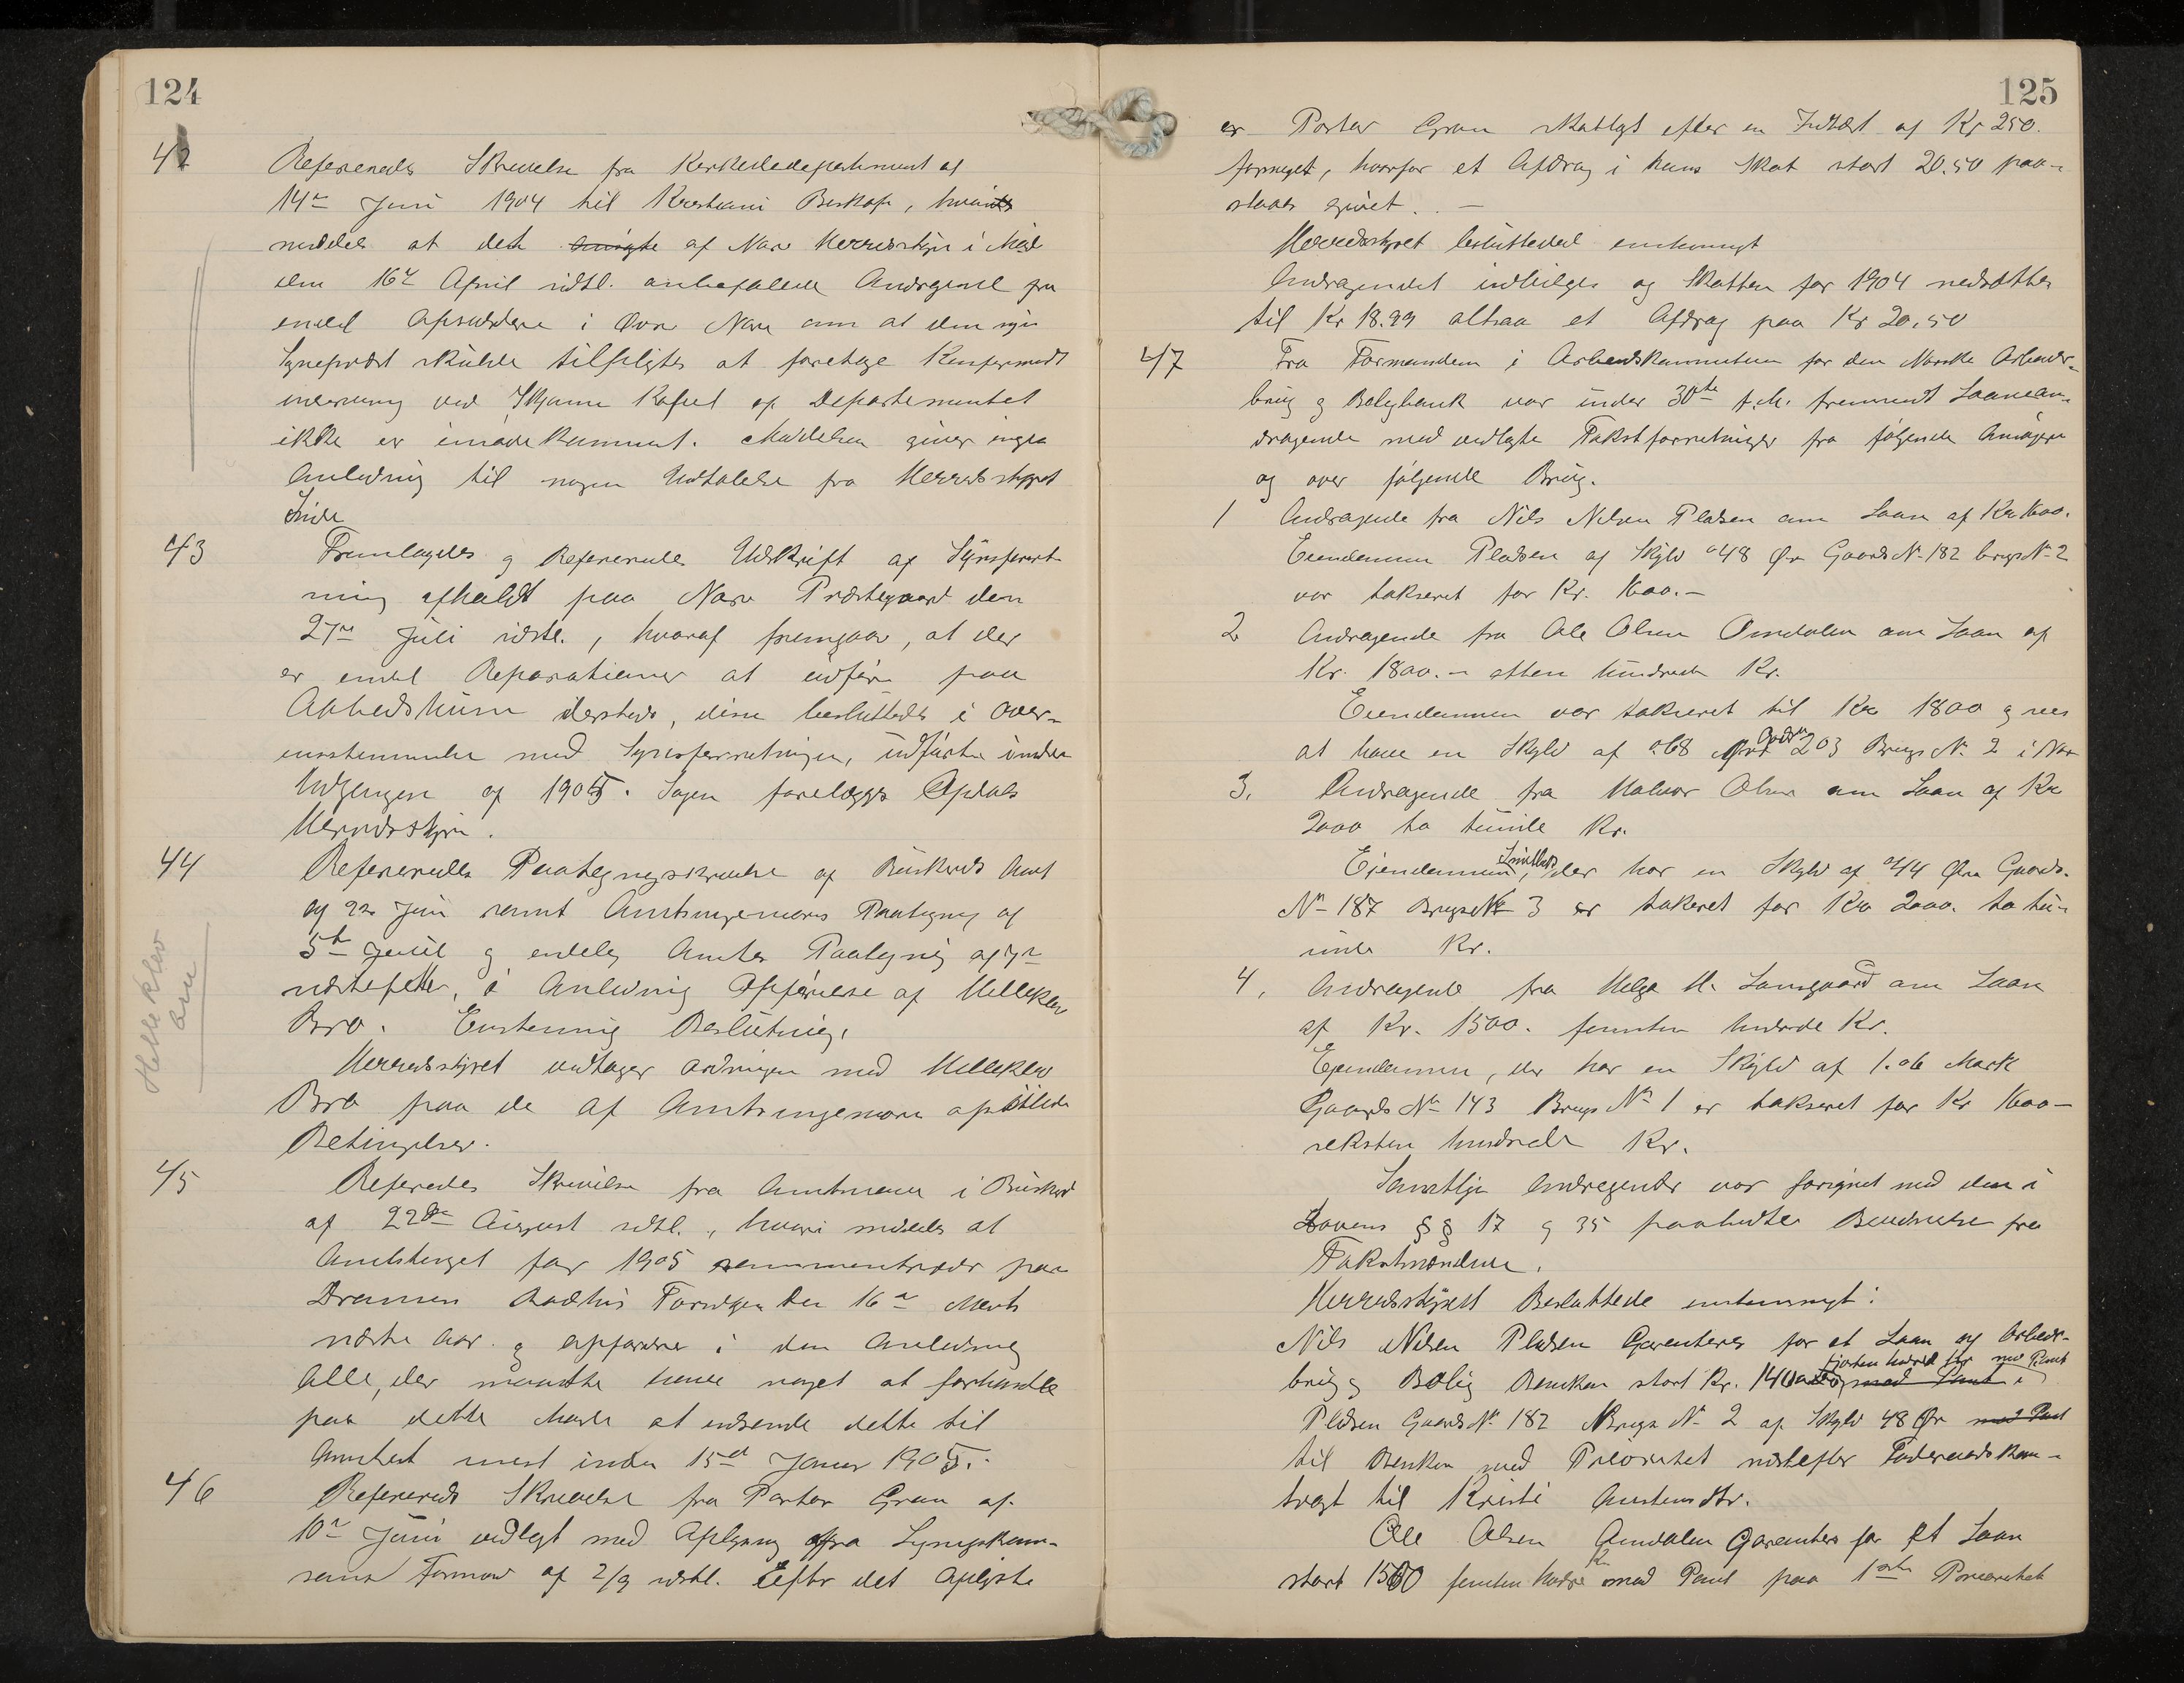 124
42
Refereredes Skrivelse fra Kerkedepartement af
14de Juni 1904 til Kristiani Biskop, hvori
meddeles at det af Nore Herredsstyre i Møde
den 16de April udstl. anbefalede Andragende fra
endel Opsiddere i Øvre Nore om at den nye
Sogneprest skulde tilpligtes at foretage
ved Skjønne Kapel af Departementet
ikke er imødekommet. Meddelelsen giver ingen
Anledning til nogen Udtalelse fra Herredsstyret
Side
43
Fremlagdes og Refereredes Udskrift af Synsforret-
ning afholdt paa Nore Præstegaard den
27de Juli sidstl., hvoraf fremgaar, at der
er endel Reparationer at udføre paa
Aabodshusene dersteds, disse besluttedes i Over-
ensstemmelse med Synsforretningen, udførte inden
Udgangen af 1905. Sagen forelægges Opdals
Herredsstyre.
44
Refereredes Paategningsskrivelse af Buskeruds Amt
af 22 Juni samt Amtsingeniørens Paategning af
5te Juli og endelig Amtes Paategning af 7de
næstefter, i Anledning Opførelse af Helleklev
Bro. Enstemmig Beslutning.
Herredsstyret vedtager ordningen med Helleklev
Bro paa de af Amtsingeniøren opstillede
Betingelser.
Helleklev
bru
45
Referedes Skrivelse fra Amtmanen i Buskerud
af 22de August sidstl., hvori meddeles at
Amtstinget for 1905 sammentræder paa
Dramen Raadhus Torsdagen den 16de Marts
næste Aar. og opfordrer i den Anledning
Alle, der maatte have noget at forhandle
paa dette Møde at indsende dette til
Amtet inden 15de Januar 1905.
46
Refereredes Skrivelse fra Pastor Gran af
10de Juni vedlagt med Oplysning fra Ligningskom-
sens Formand af 2/9 sidstl. Efter det Oplyste
125
er Pastor Gran skatlagt efter en Indtægt af Kr 250.
formeget, hvorfor et Afdrag i hans Skat stort 20.50 paa-
staaes givet. . —
Herredsstyret besluttede enstemmigt
Andragendet indvilges og Skatten for 1904 nedsættes
til Kr 18.99 altsaa et Afdrag paa Kr 20.50
47
Fra Formanden i Arbeidskommiteen for den Norske Arbeider-
brug og Boligbank var under 30te f.M. fremsendt Laanean-
dragende med vedlagte Takstforretninger fra følgende Ansøgere
og over følgende Brug.
1
Andragende fra Nils Nilsen Pladsen om Laan af Kr. 1600.
Eiendommen Pladsen af Skyld 048 Øre Gaards No 182 brugs No 2
var takseret for Kr. 1600. —
2
Andragende fra Ole Olsen Omdalen om Laan af
Kr. 1800. — atten hundrede Kr.
Eiendommen var takseret til Kr 1800 og sees
at have en Skyld af 0.68 Øre 203 Brugs No 2 i Nore
3.
Andragende fra Halvor Olsen om Laan af Kr
2000 to tusinde Kr.
Eiendommen, der har en Skyld af 044 Øre Gaards.
No 187 Brugs No 3 er takseret for Kr 2000. to tu-
sinde Kr.
4.
Andragende fra Helge H. Langaard om Laan
af Kr. 1500. femten hundrede Kr.
Eiendommen, der har en Skyld af 1.06 Mark
Gaards No 143 Brugs No 1 er takseret for Kr 1600 —
seksten hundrede Kr.
Samtlige Andragender var forsynet med den i
Lovens §§ 17 og 35 paabudte Bevidnelse fra
Takstmændene.
Herredsstyret Besluttede enstemmigt:
Nils Nilsen Pladsen Garanteres for et Laan af Arbeider-
brug og Bolig Banken stort Kr. 1400 fjorten hundrede Kr med Pant i
Pladsen Gaards No 182 Brugs No 2 af Skyld 48 Øre med Pant
til Banken med Prioritet næstefter Føderaadskon-
tragt til Kristi
Ole Olsen Omdalen Garanteres for et Laan
stort 1500 femten hundre Kr med Pant paa 1ste Prioritet